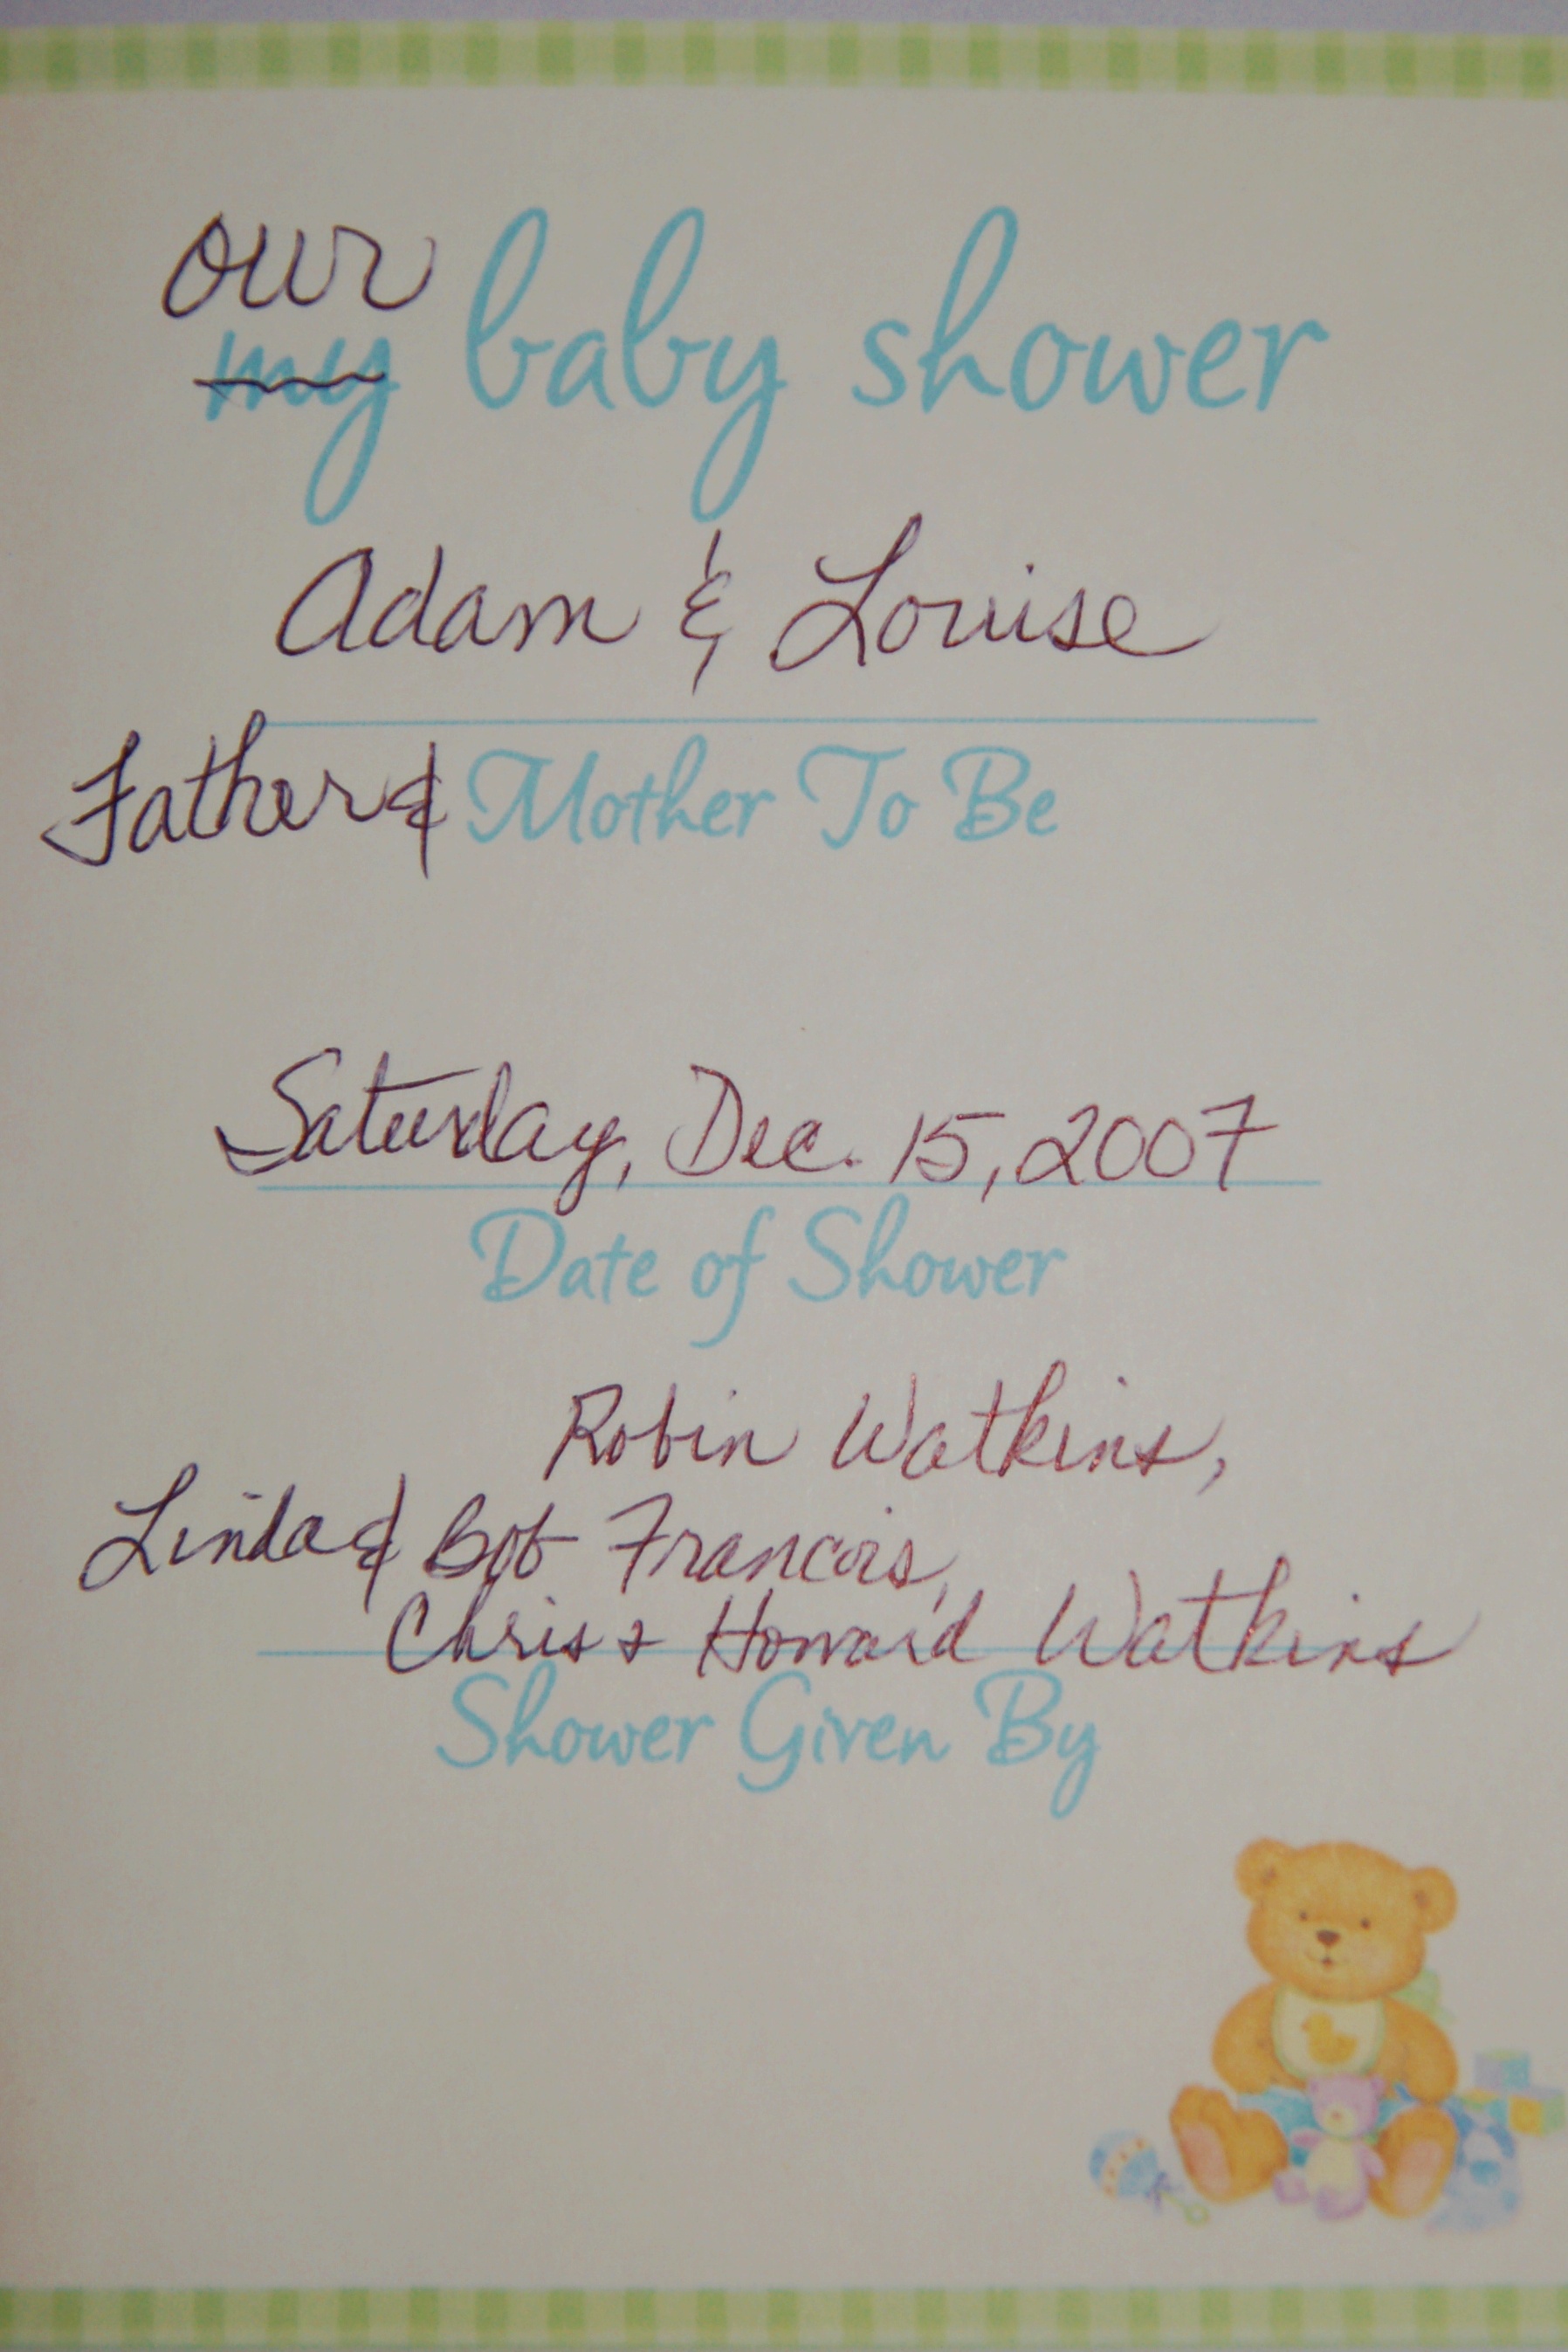 our
my baby shower
Adam & Louise
Father & Mother To Be
Saturday, Dec. 15, 2007
Date of Shower
Robin Watkins,
Linda & Bob Francois,
Chris & Howard Watkins
Shower Given By